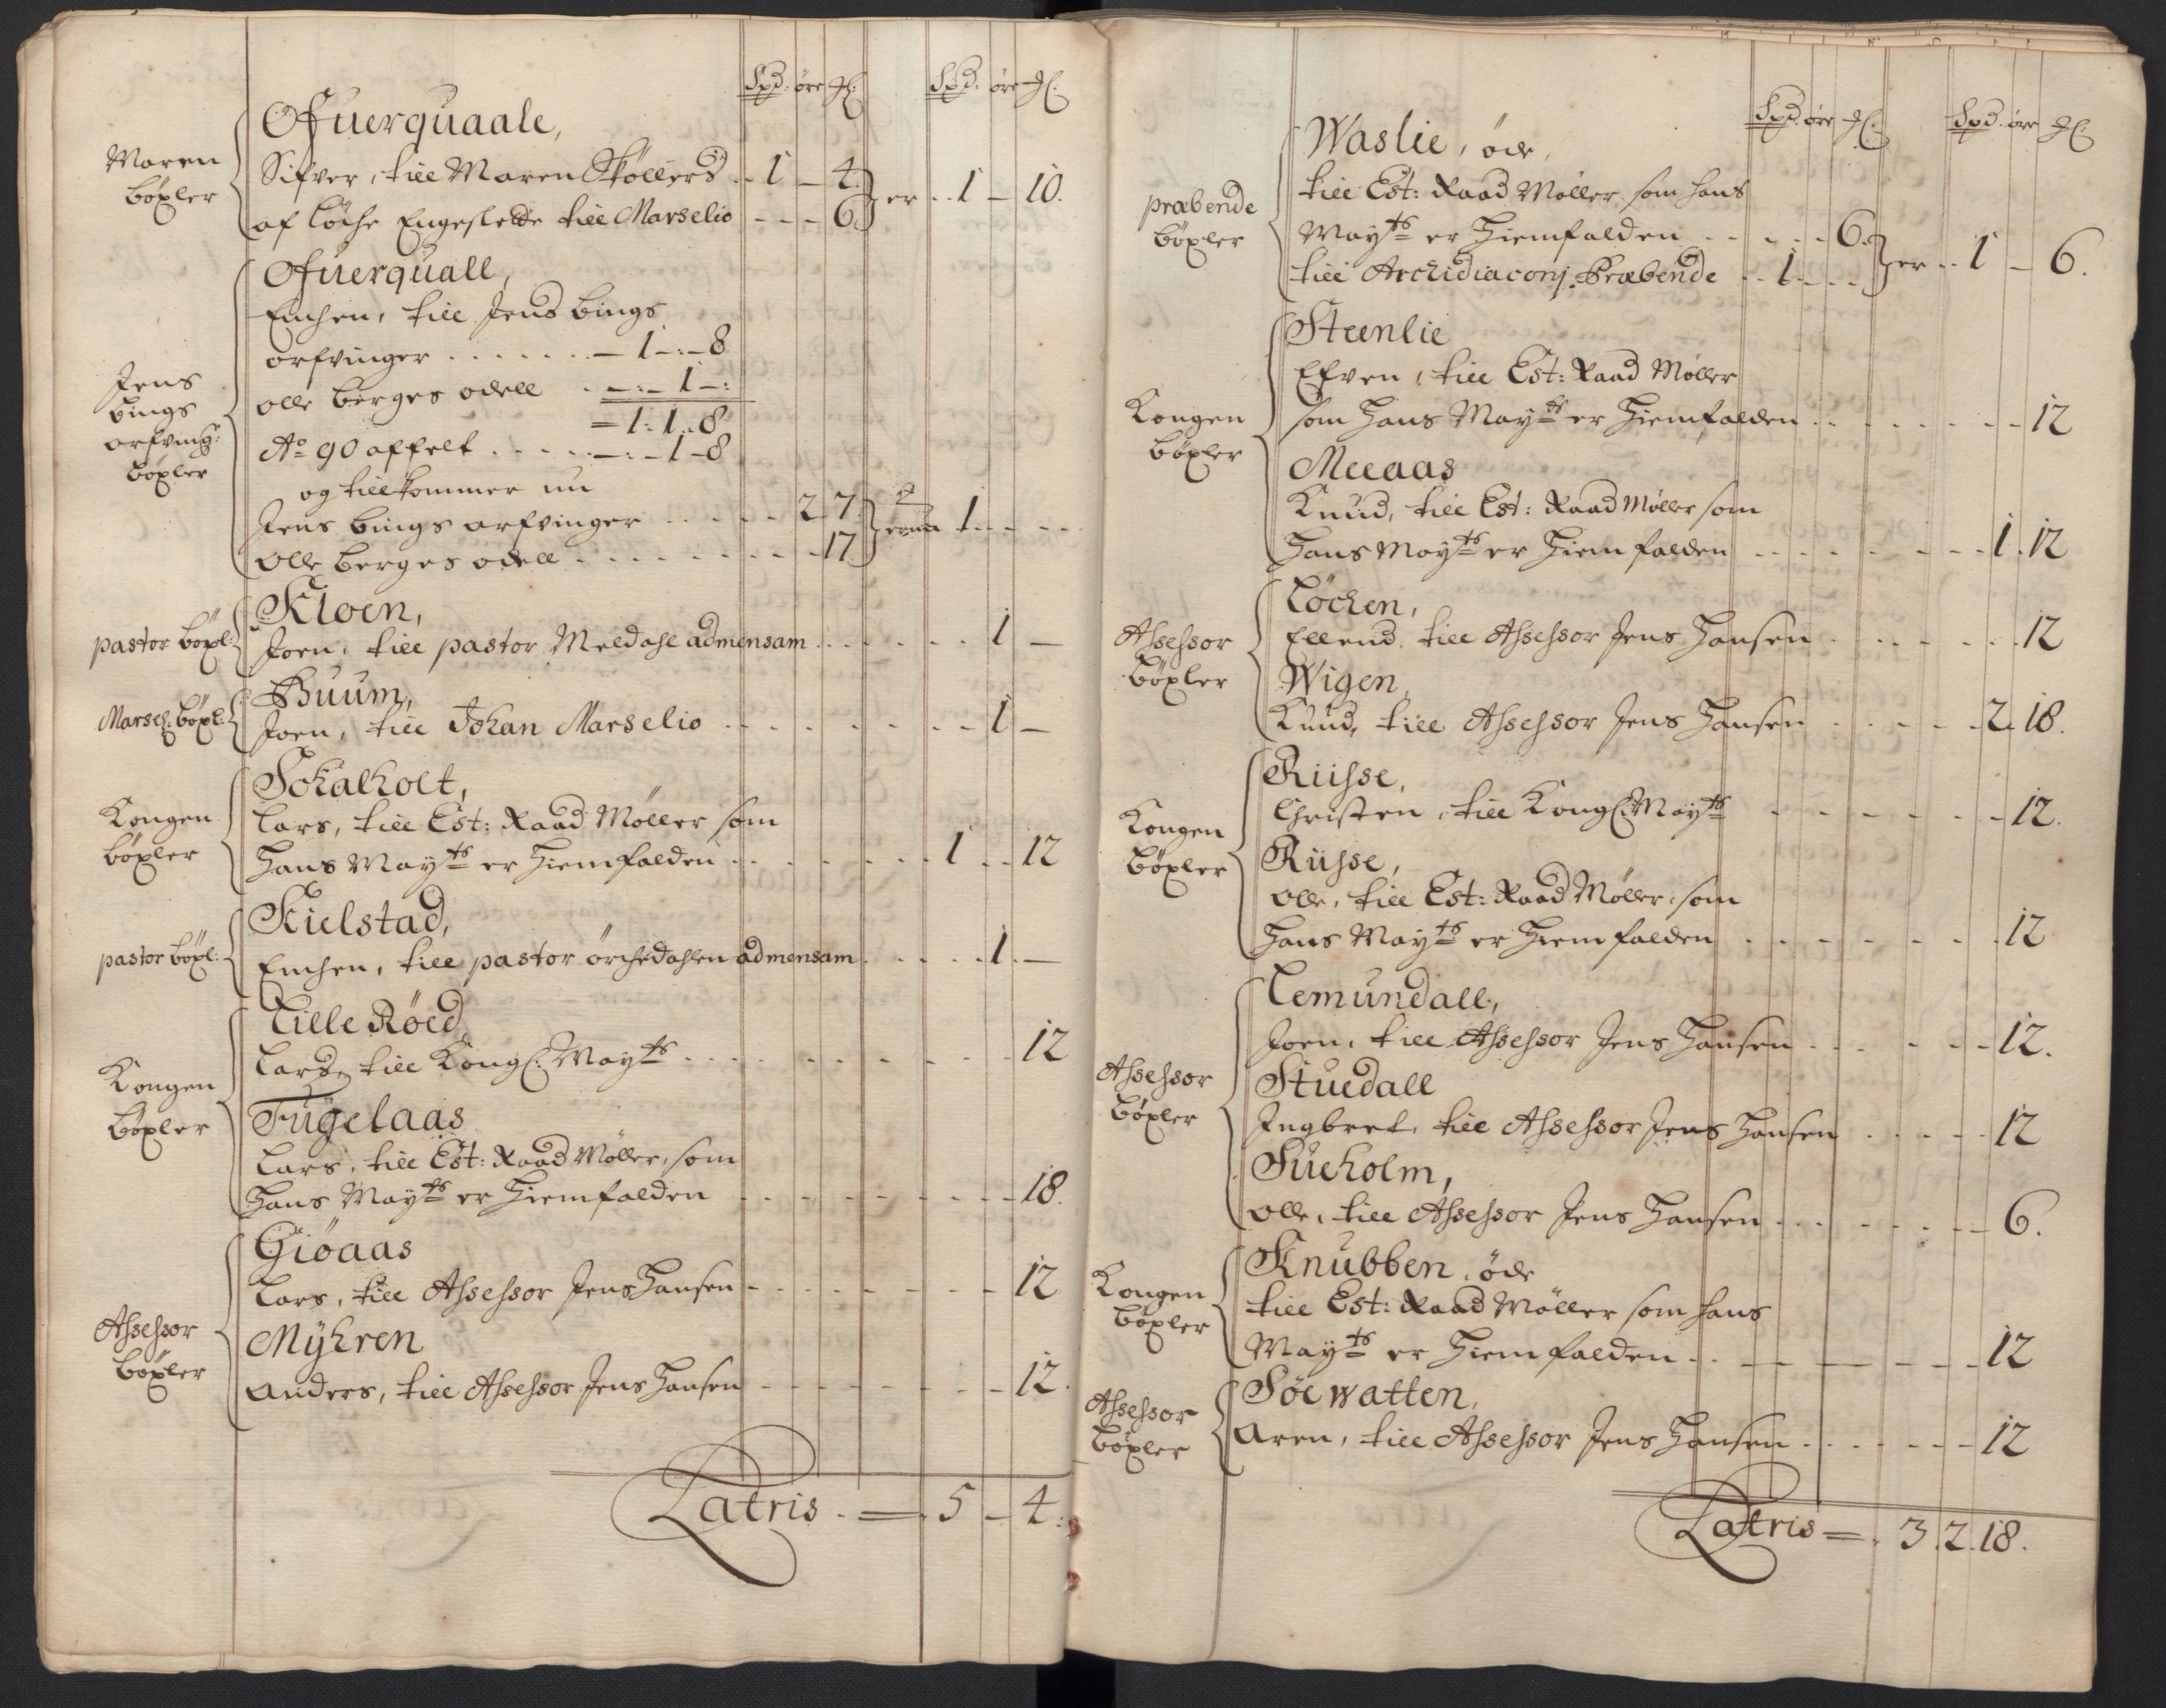 Spd. øre ₰: Spd. øre ₰:
Ofuerquaale,
Maren
bøxler
Sifver, till Maren Skøllers .. 1 — 4.
af løche Engeslette till Marselio - - - 6. } er .. 1 — 10.
Ofuerquall,
Jens
bings
arfving:
bøxler
Enchen, till Jens bings
arfvinger . . . . . . . — 1 —:— 8
olle berges odell . —:— 1 —:
= 1: 1. 8
Ao 90 affelt . . . . . —:— 1 — 8
og tillkommer nu
Jens bings arfvinger . . . . . 2. 7.
olle berges odell . . . . . . . 17. } er nu 1. — . - -
Kloen,
pastor bøxl:
Joen, till pastor Meldahl admensam . . . . . . 1 —
Buum,
Marsel: bøxl:
Joen, till Johan Marselio . . . . . . . . 1 —
Schalholt,
Kongen
bøxler
Lars, till Est: Raad Møller som
Hans Mayts er Hiemfalden . . . . . . . 1 . . 12
Kielstad,
pastor bøxl:
Enchen, till pastor ørchedahlen admensam . . . . . 1. —
Lille Røed,
Kongen
bøxler
Lars, till Kongl: Mayts . . . . . . . . . 12
Fugelaas
Lars, till Est: Raad Møller, som
Hans Mayts er Hiemfalden . . . . . . . . 18.
Giøaas
Assessor
bøxler
Lars, till Assessor Jens Hansen . . . . . . . . 12
Myhren
Anders, till Assessor Jens Hansen . . . . . . . . 12.
Latris . = . 5 — 4:
Spd. øre ₰: Spd. øre ₰:
Waslie, øde,
præbende
bøxler
till Est: Raad Møller som hans
Mayts er Hiemfalden . . . . . 6.
till Archidiaconj: Præbende . . 1. . . . } er . . 1 — 6.
Steenlie
Kongen
bøxler
Efven, till Est: Raad Møller
som Hans Mayts er Hiemfalden . . . . . . . . 12
Meeaas
Knud, till Est: Raad Møller som
Hans Mayts er Hiemfalden . . . . . . . 1. 12
Løchen,
Assessor
bøxler
Ellend. till Assessor Jens Hansen . . . . . . . 12
Wigen,
Knud, till Assessor Jens Hansen . . . . . 2. 18.
Riisse,
Kongen
bøxler
Christen, till Kongl: Mayts . . . . . . 12.
Riisse,
olle, till Est: Raad Møller, som
Hans Mayts er Hiemfalden . . . . . . . 12
Lemundall,
Assessor
bøxler
Joen, till Assessor Jens Hansen . . . . . . 12.
Stuedall
Ingbret, till Assessor Jens Hansen . . . . . 12
Sueholm,
olle, till Assessor Jens Hansen . . . . . . . 6.
Knubben, øde
Kongen
bøxler
till Est: Raad Møller som hans
Mayts er Hiemfalden . . — — — — — 12
Søe watten,
Assessor
bøxler
Aren, till Assessor Jens Hansen . . . . . . 12
Latris = . 3. 2. 18.